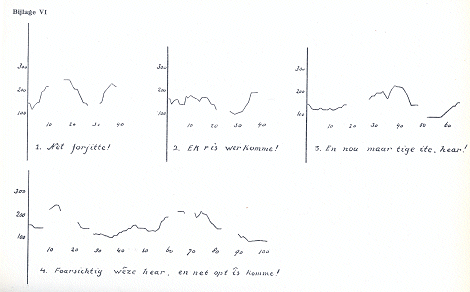 Bijlage VI
300
200
100
10 20 30 40
1. Net forjitte!
300
200
100
10 20 30 40
2. En r is werkomme!
300
200
100
10 20 30 40 50 60
3. En nou maar tige ite, hear!
300
200
100
10 20 30 40 50 60 70 80 90 100
4. Foarsichtig wêze hear, en net opt îs komme!